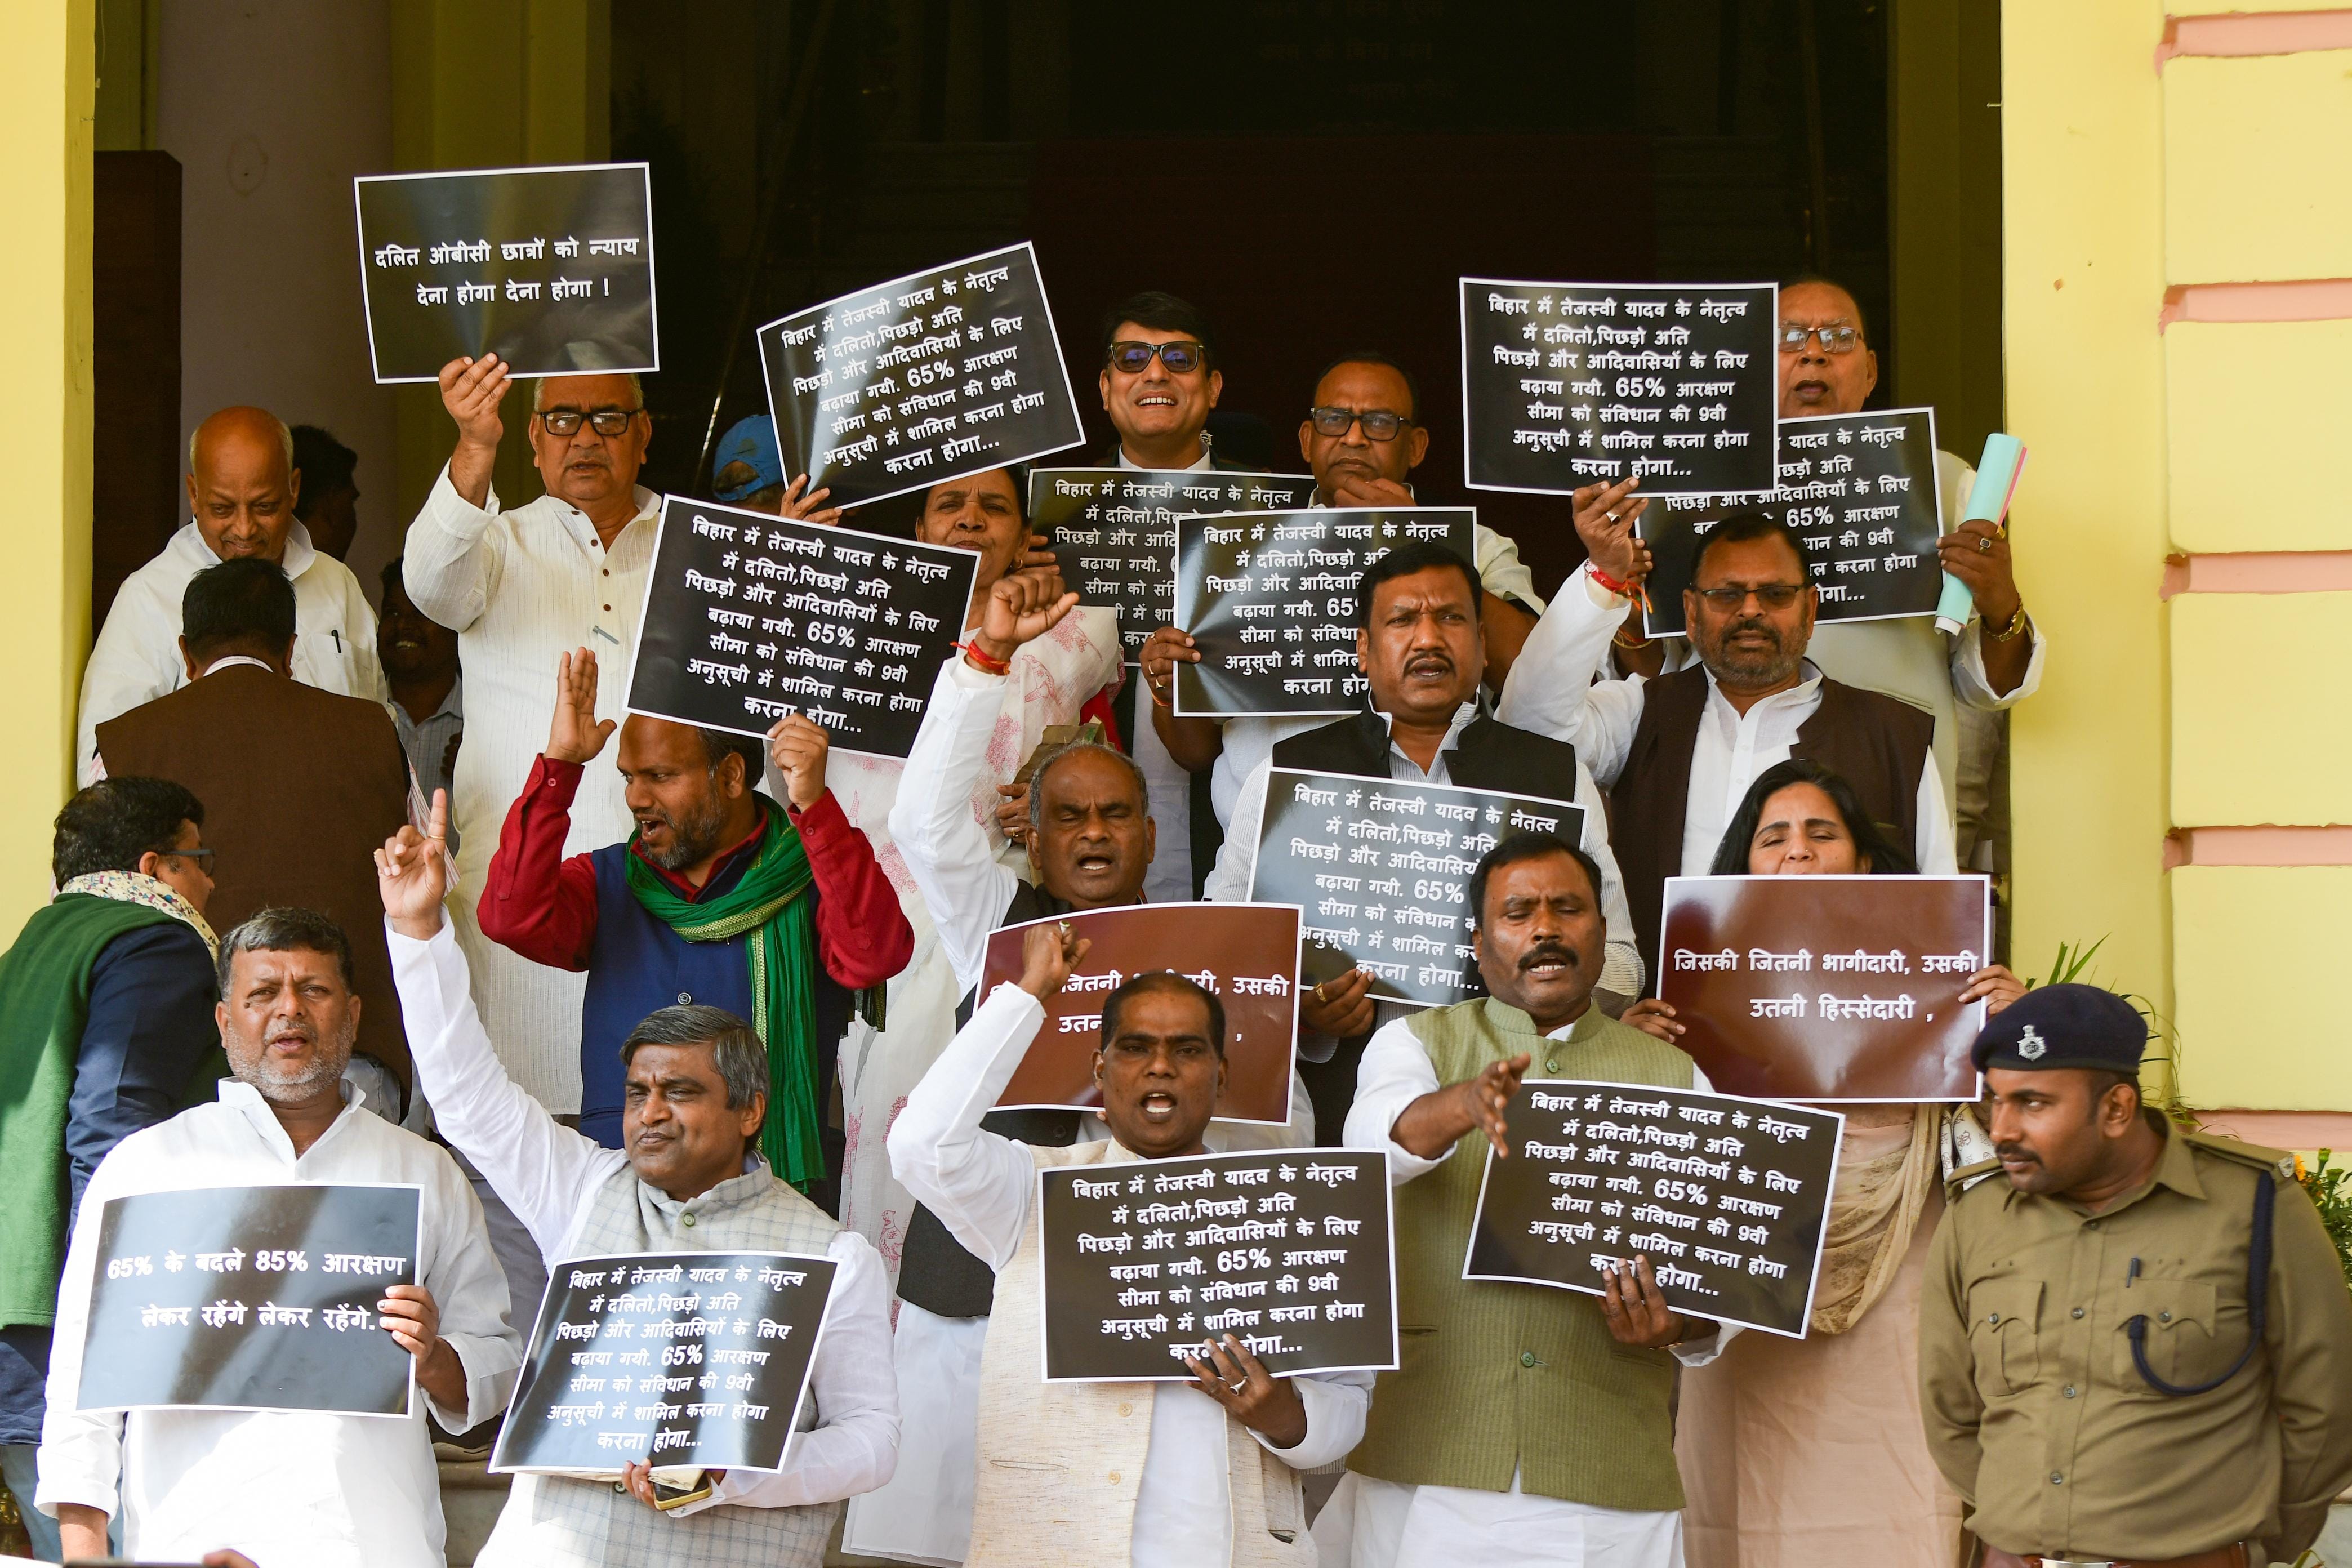 दलित ओबीसी छात्रों को न्याय
देना होगा देना होगा !
बिहार में तेजस्वी यादव के नेतृत्व
में दलितो,पिछड़ो अति
पिछड़ो और आदिवासियों के लिए
बढ़ाया गयी. 65% आरक्षण
सीमा को संविधान की 9वी
अनुसूची में शामिल करना होगा
करना होगा...
बिहार में तेजस्वी यादव के नेतृत्व
में दलितो,पिछड़ो अति
पिछड़ो और आदिवासियों के लिए
बढ़ाया गयी. 65% आरक्षण
सीमा को संविधान की 9वी
अनुसूची में शामिल करना होगा
करना होगा...
यादव के नेतृत्व
अति
पिछड़ो और आदिवासियों के लिए
65% आरक्षण
की 9वी
करना होगा
बिहार में तेजस्वी यादव के नेतृत्व
में
पिछड़ो और
बढ़ाया गयी.
सीमा को
में
बिहार में तेजस्वी यादव के नेतृत्व
में दलितो,पिछड़ो अति
पिछड़ो और आदिवासियों के लिए
बढ़ाया गयी. 65% आरक्षण
सीमा को संविधान की 9वी
अनुसूची में शामिल करना होगा
करना होगा...
बिहार में तेजस्वी यादव के नेतृत्व
में दलितो,पिछड़ो अति
पिछड़ो और
बढ़ाया गयी.
सीमा को
अनुसूची में
करना
बिहार में तेजस्वी यादव के नेतृत्व
में दलितो,पिछड़ो अति
पिछड़ो और
बढ़ाया गयी. 65%
सीमा को संविधान
अनुसूची में शामिल
करना होगा...
जितनी उसकी
,
जिसकी जितनी भागीदारी, उसकी
उतनी हिस्सेदारी ,
65% के बदले 85% आरक्षण
लेकर रहेंगे लेकर रहेंगे.
बिहार में तेजस्वी यादव के नेतृत्व
में दलितो,पिछड़ो अति
पिछड़ो और आदिवासियों के लिए
बढ़ाया गयी. 65% आरक्षण
सीमा को संविधान की 9वी
अनुसूची में शामिल करना होगा
करना होगा...
बिहार में तेजस्वी यादव के नेतृत्व
में दलितो,पिछड़ो अति
पिछड़ो और आदिवासियों के लिए
बढ़ाया गयी. 65% आरक्षण
सीमा को संविधान की 9वी
अनुसूची में शामिल करना होगा
करना होगा...
बिहार में तेजस्वी यादव के नेतृत्व
में दलितो,पिछड़ो अति
पिछड़ो और आदिवासियों के लिए
बढ़ाया गयी. 65% आरक्षण
सीमा को संविधान की 9वी
अनुसूची में शामिल करना होगा
करना होगा...